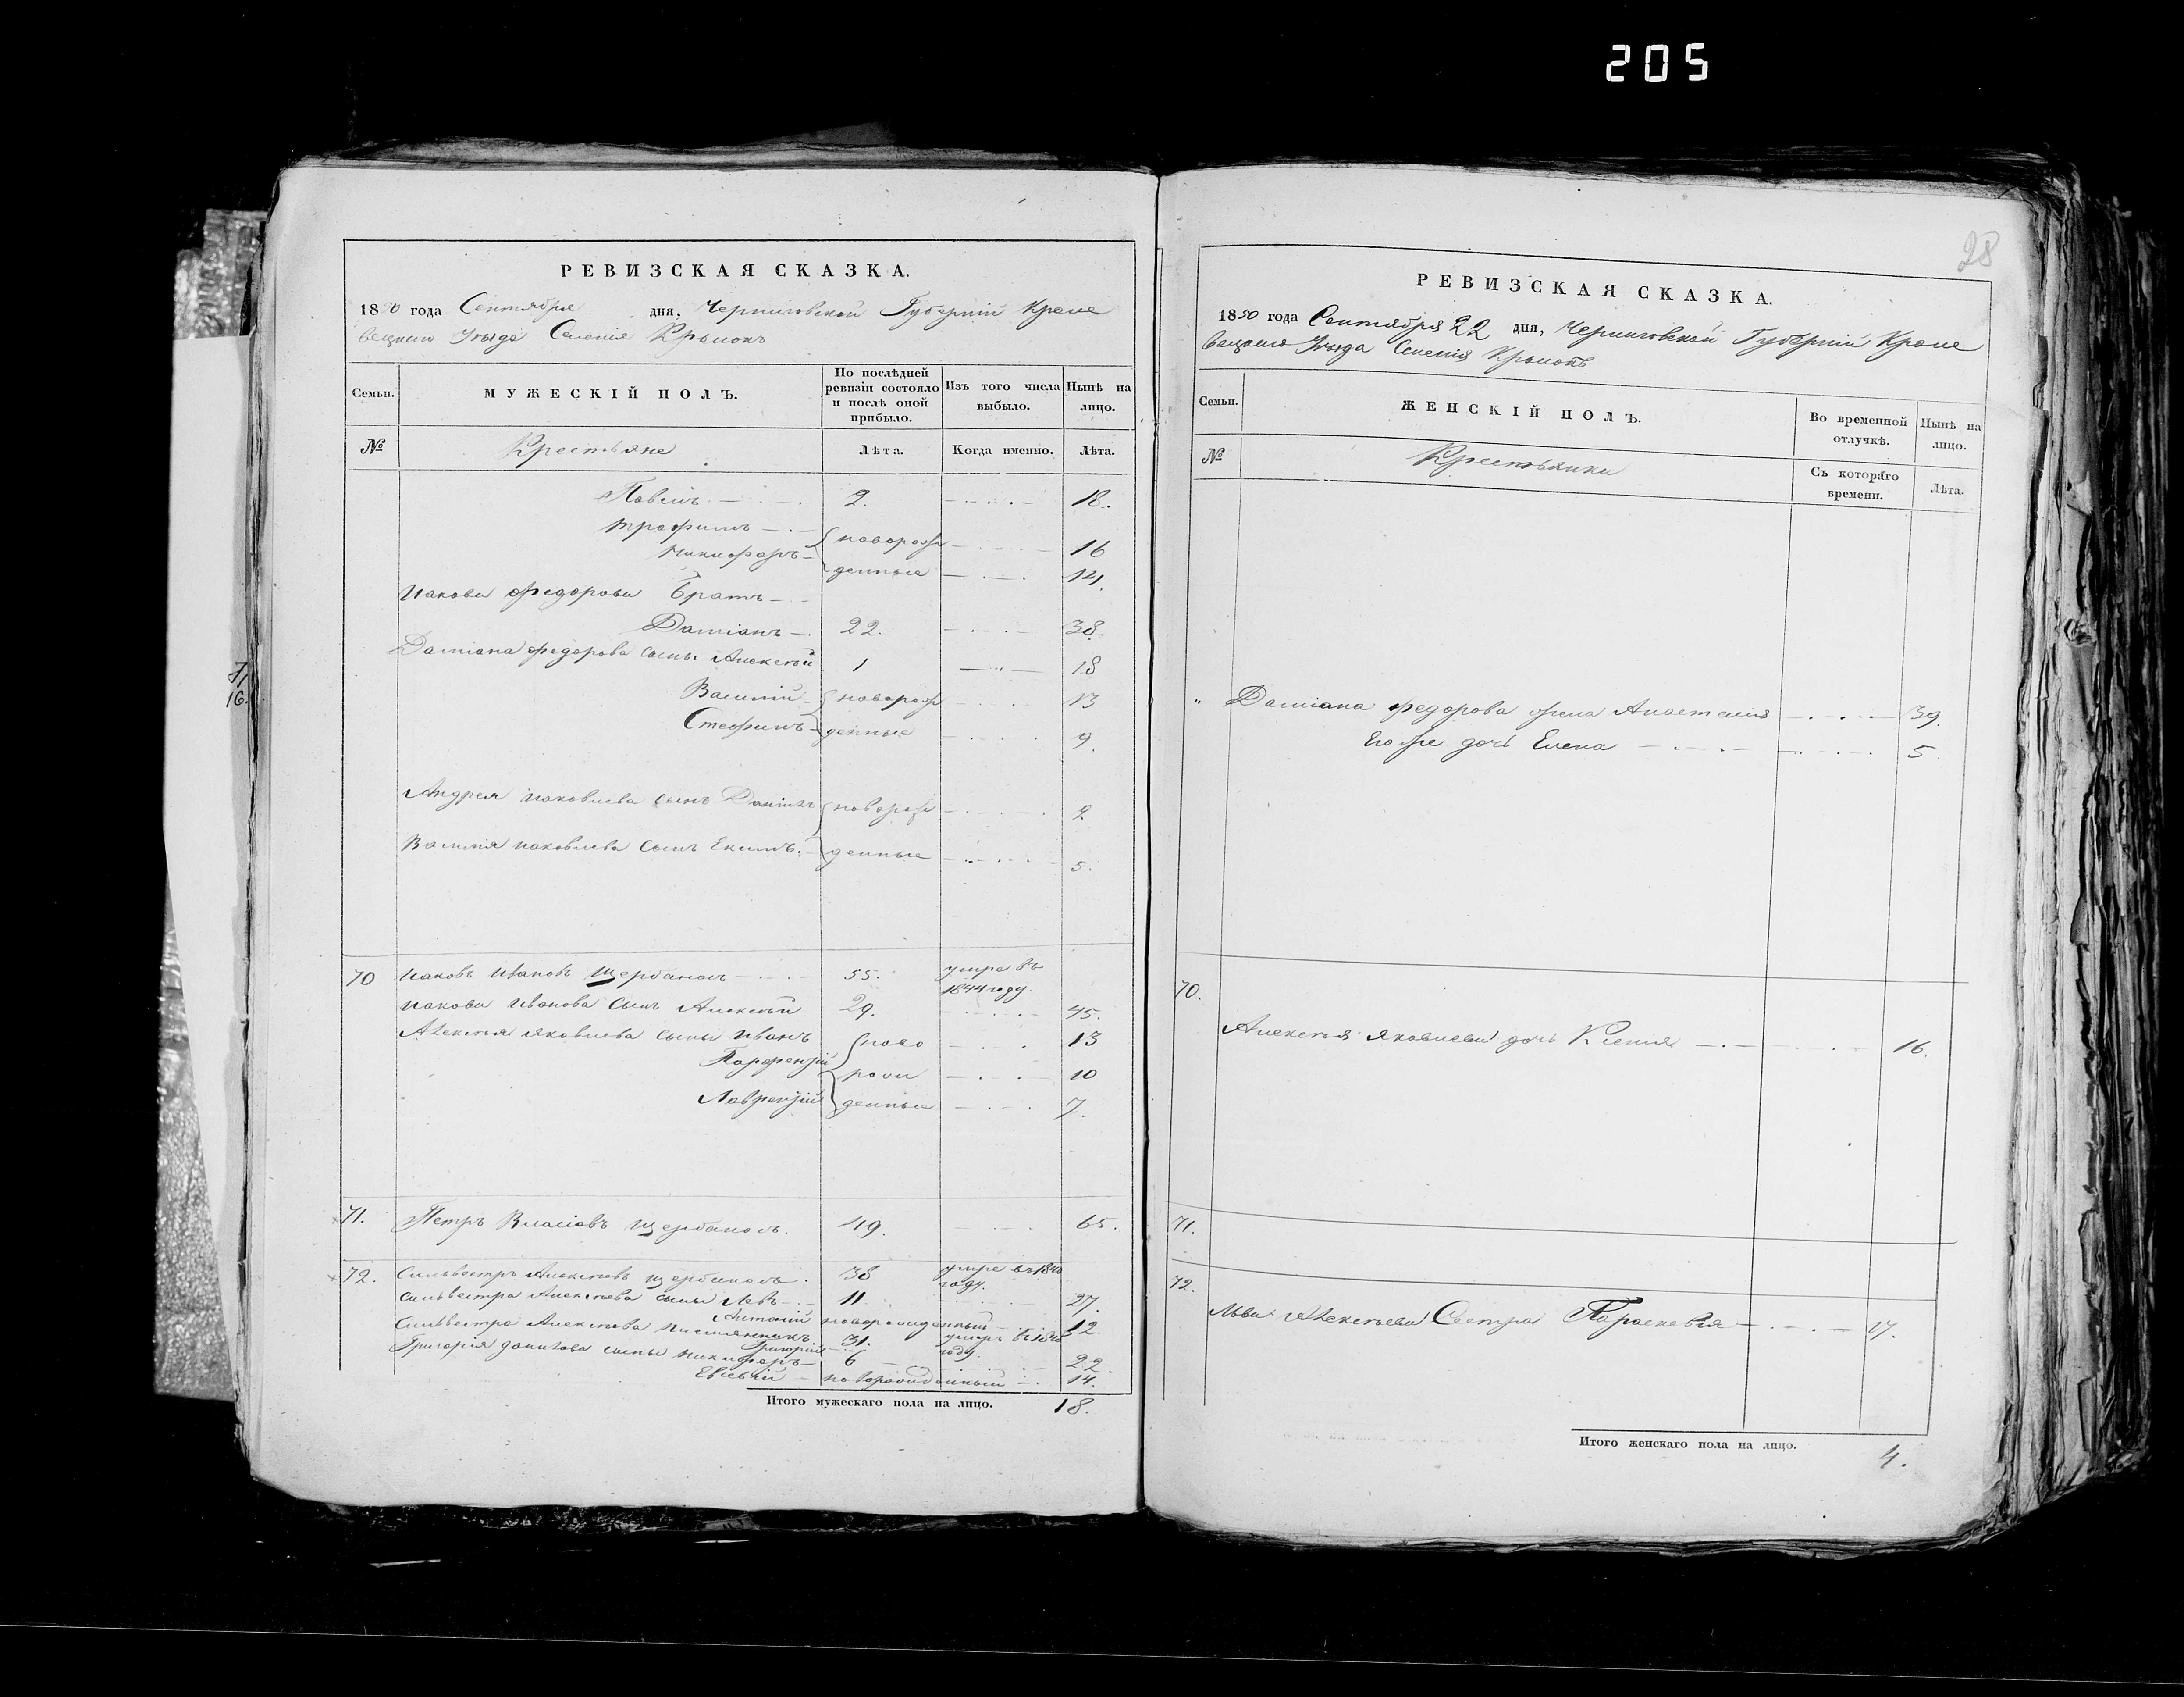 205
РЕВИЗСКАЯ СКАЗКА.
1850 года Сентября дня, Черниговской Губерній Кроле
вецкаго Уѣзда Селенія
Семьи.
МУЖЕСКІЙ ПОЛЪ.
По послѣдней ревизіи состояло и послѣ оной прибыло.
Изъ того числа выбыло.
Нынѣ на лицо.
№
Крестьяне
Лѣта.
Когда именно.
Лѣта.
Павелъ 2. 18.
Трофимъ новорож 16
Никифоръ денные 14.
Иакова Федорова Братъ
Даміанъ 22. 38.
Даміана Федорова сыны Алексѣй 1 18
Василій новорож 13
денные 9.
Андрея Иаковлева сынъ новорож 2
Василія Иаковлева сынъ Екимъ. денные 5.
70 Иаковъ Ивановъ Щербакъ 55. умре въ
1844 году.
Иакова Иванова сынъ Алексѣй 29. 45.
Алексѣя Яковлева сыны Иванъ ново 13
Парфентій рож 10
Лаврентій денные 7.
71. Петръ Власіовъ 49. 65.
72. Сильвестръ Алексѣевъ 38 умре въ 1840
году.
Сильвестра Алексѣева сыны Левъ 11. 27.
Антоній новорожденный 12.
Сильвестра Алексѣева племянникъ
Григорій 31. умеръ въ
году.
Григорія сыны Никифоръ 6 22
Евсевій новорожденный 14.
Итого мужескаго пола на лицо. 18.
71
16.
28
РЕВИЗСКАЯ СКАЗКА.
1850 года Сентября 22 дня, Черниговской Губерній Кроле
вецкаго Уѣзда Селенія
Семьи.
ЖЕНСКІЙ ПОЛЪ.
Во временной отлучкѣ.
Нынѣ на лицо.
№
Крестьянки
Съ котораго времени.
Лѣта.
" Даміана Федорова жена Анастасія 39.
Его же дочь Елена 5.
70.
Алексѣя Яковлева дочь Ксенія 16.
71.
72.
Льва Алексѣева Сестра Параскевія 17.
Итого женскаго пола на лицо. 4.